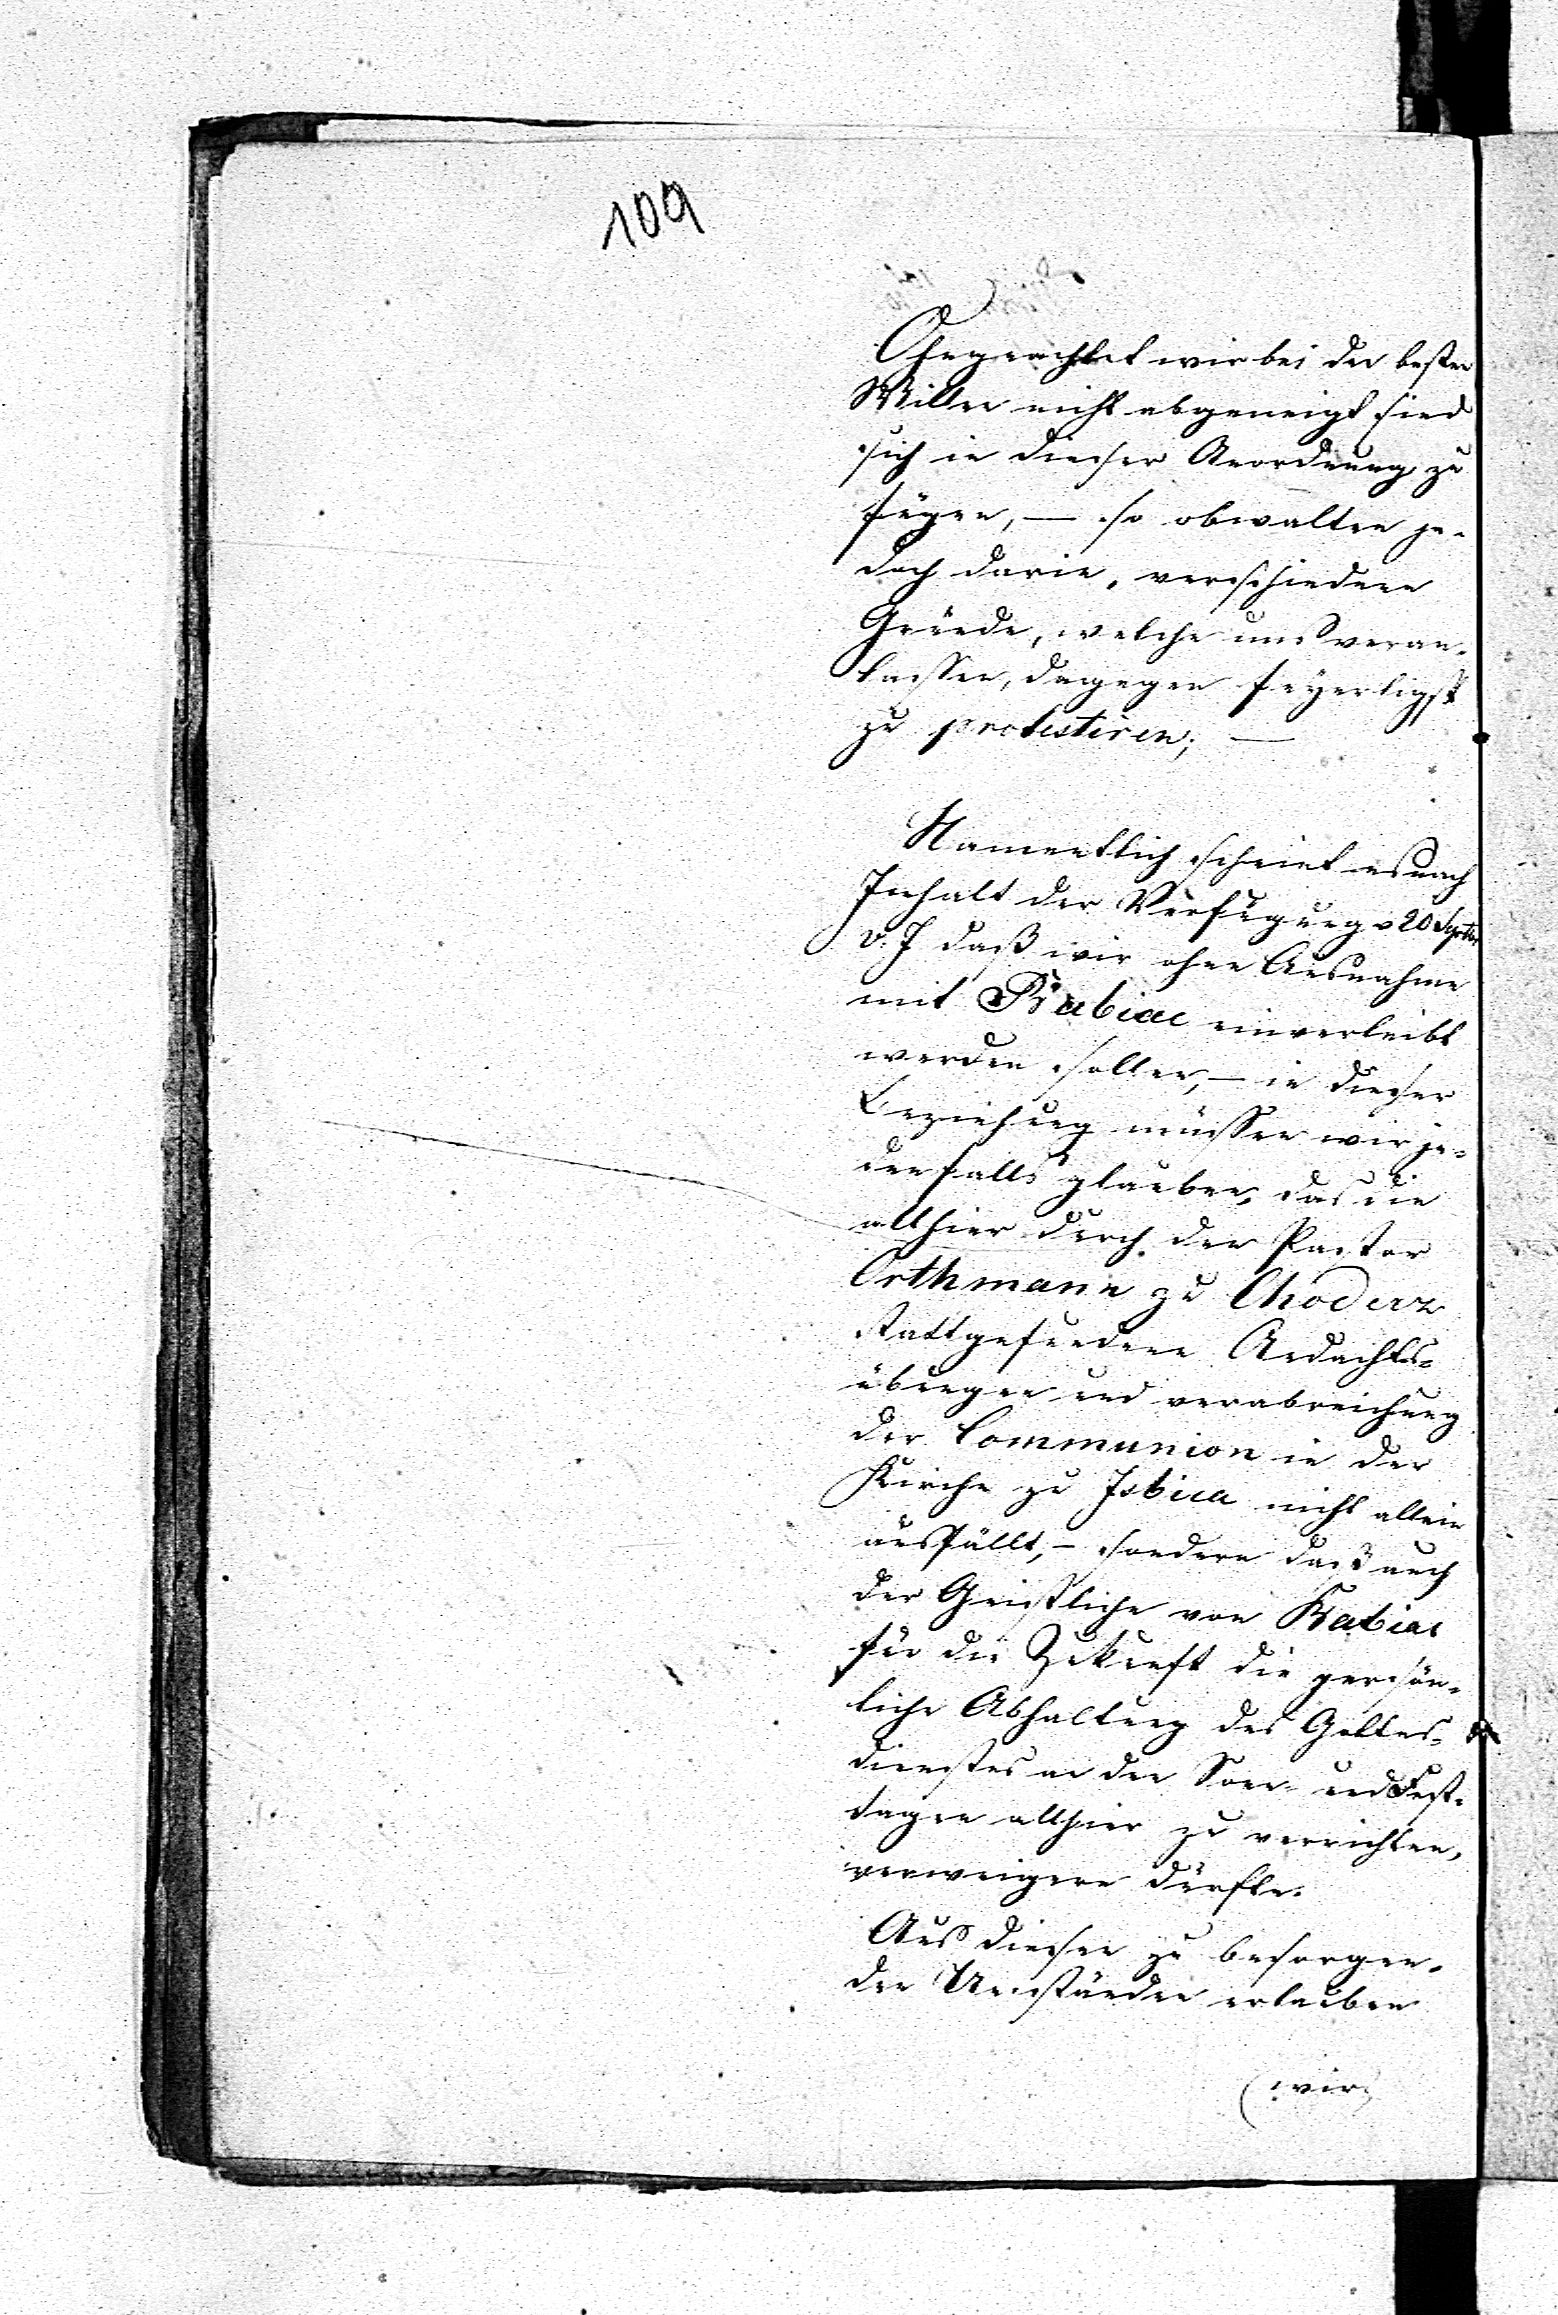 109
Ohngeachtet wir bei den besten
Willen nicht abgeneigt sind
sich in dieser Anordnung zu
fügen, — so obwalten je-
doch darin, verschiedene
Gründe, welche uns veran-
lassen, dagegen feyerligst
zu protestiren; —
Namentlich scheint es nach
Inhalt der Verfügung v 20 Septbr
v. J daß wir ohne Ausnahme
mit Babiac einverleibt
werden sollen, — in dieser
Beziehung müssen wir je-
denfalls glauben, das die
allhier durch den Pastor
Orthmann zu Chodecz
stattgefundene Andachts-
übungen und verabreichung
der Communion in der
Kirche zu Isbica nicht allein
ausfällt, — sondern daß auch
der Geistliche von Babiac
für die Zukunft die persön-
liche Abhaltung des Gottes-
dienstes an den Sonn- und Fest-
tagen allhier zu verrichten,
verweigern dürfte.
Aus diesen zu besorgen-
den Umständen erlauben
(wir)